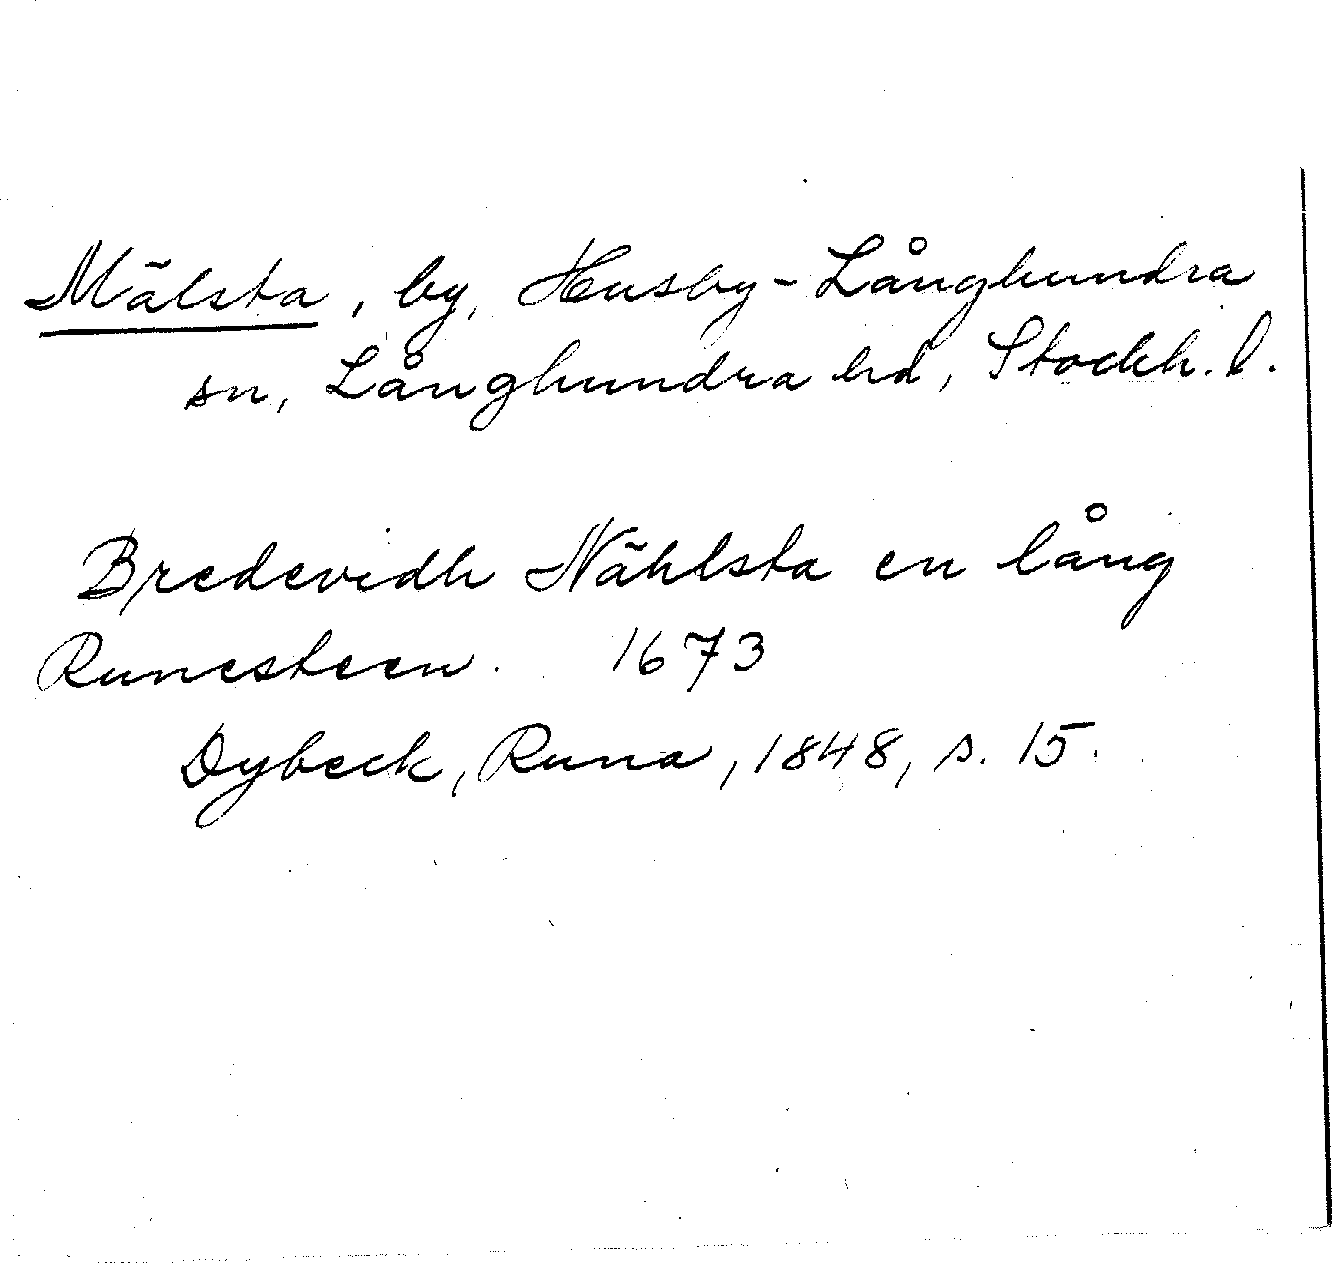 Mälsta, by, Husby-Långhundra
sn, Långhundra hd, Stockh. l.
Bredevidh Nählsta en lång
Runesteen. 1673
Dybeck, Runa, 1848, s. 15.